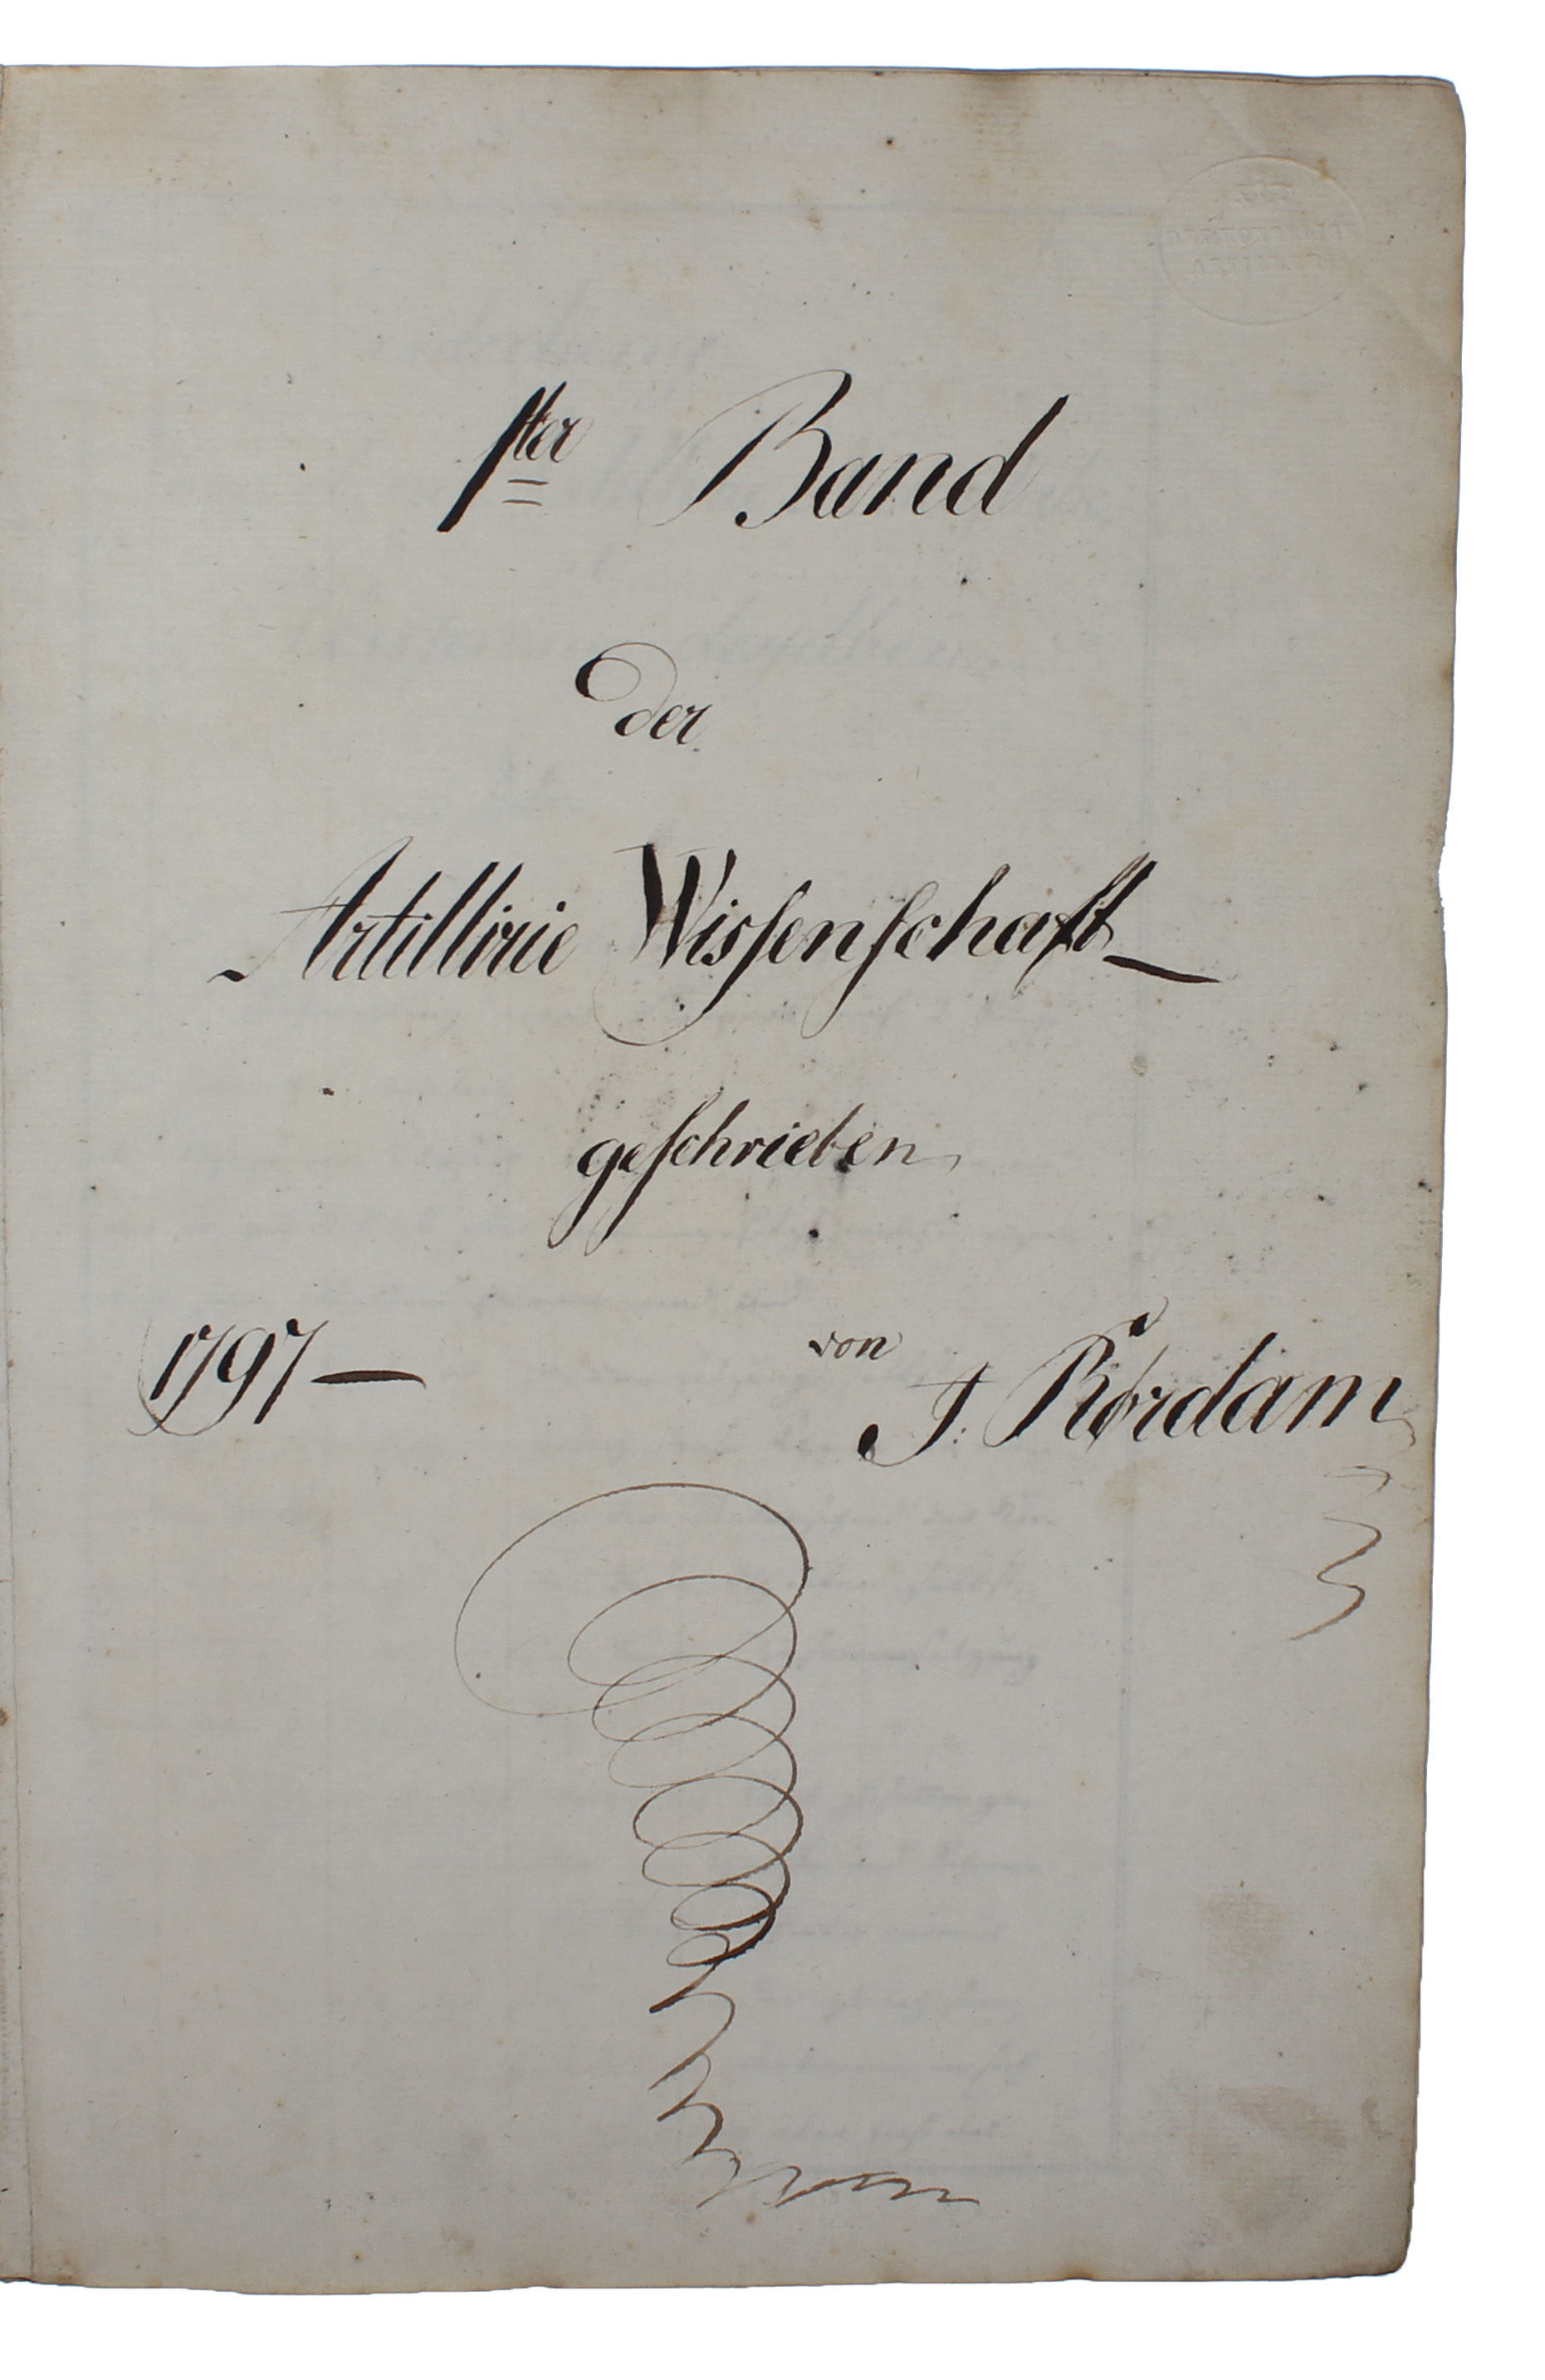 1ster Band
der
Artillirie Wissenschaft
geschrieben
1797 — von J. Rørdam